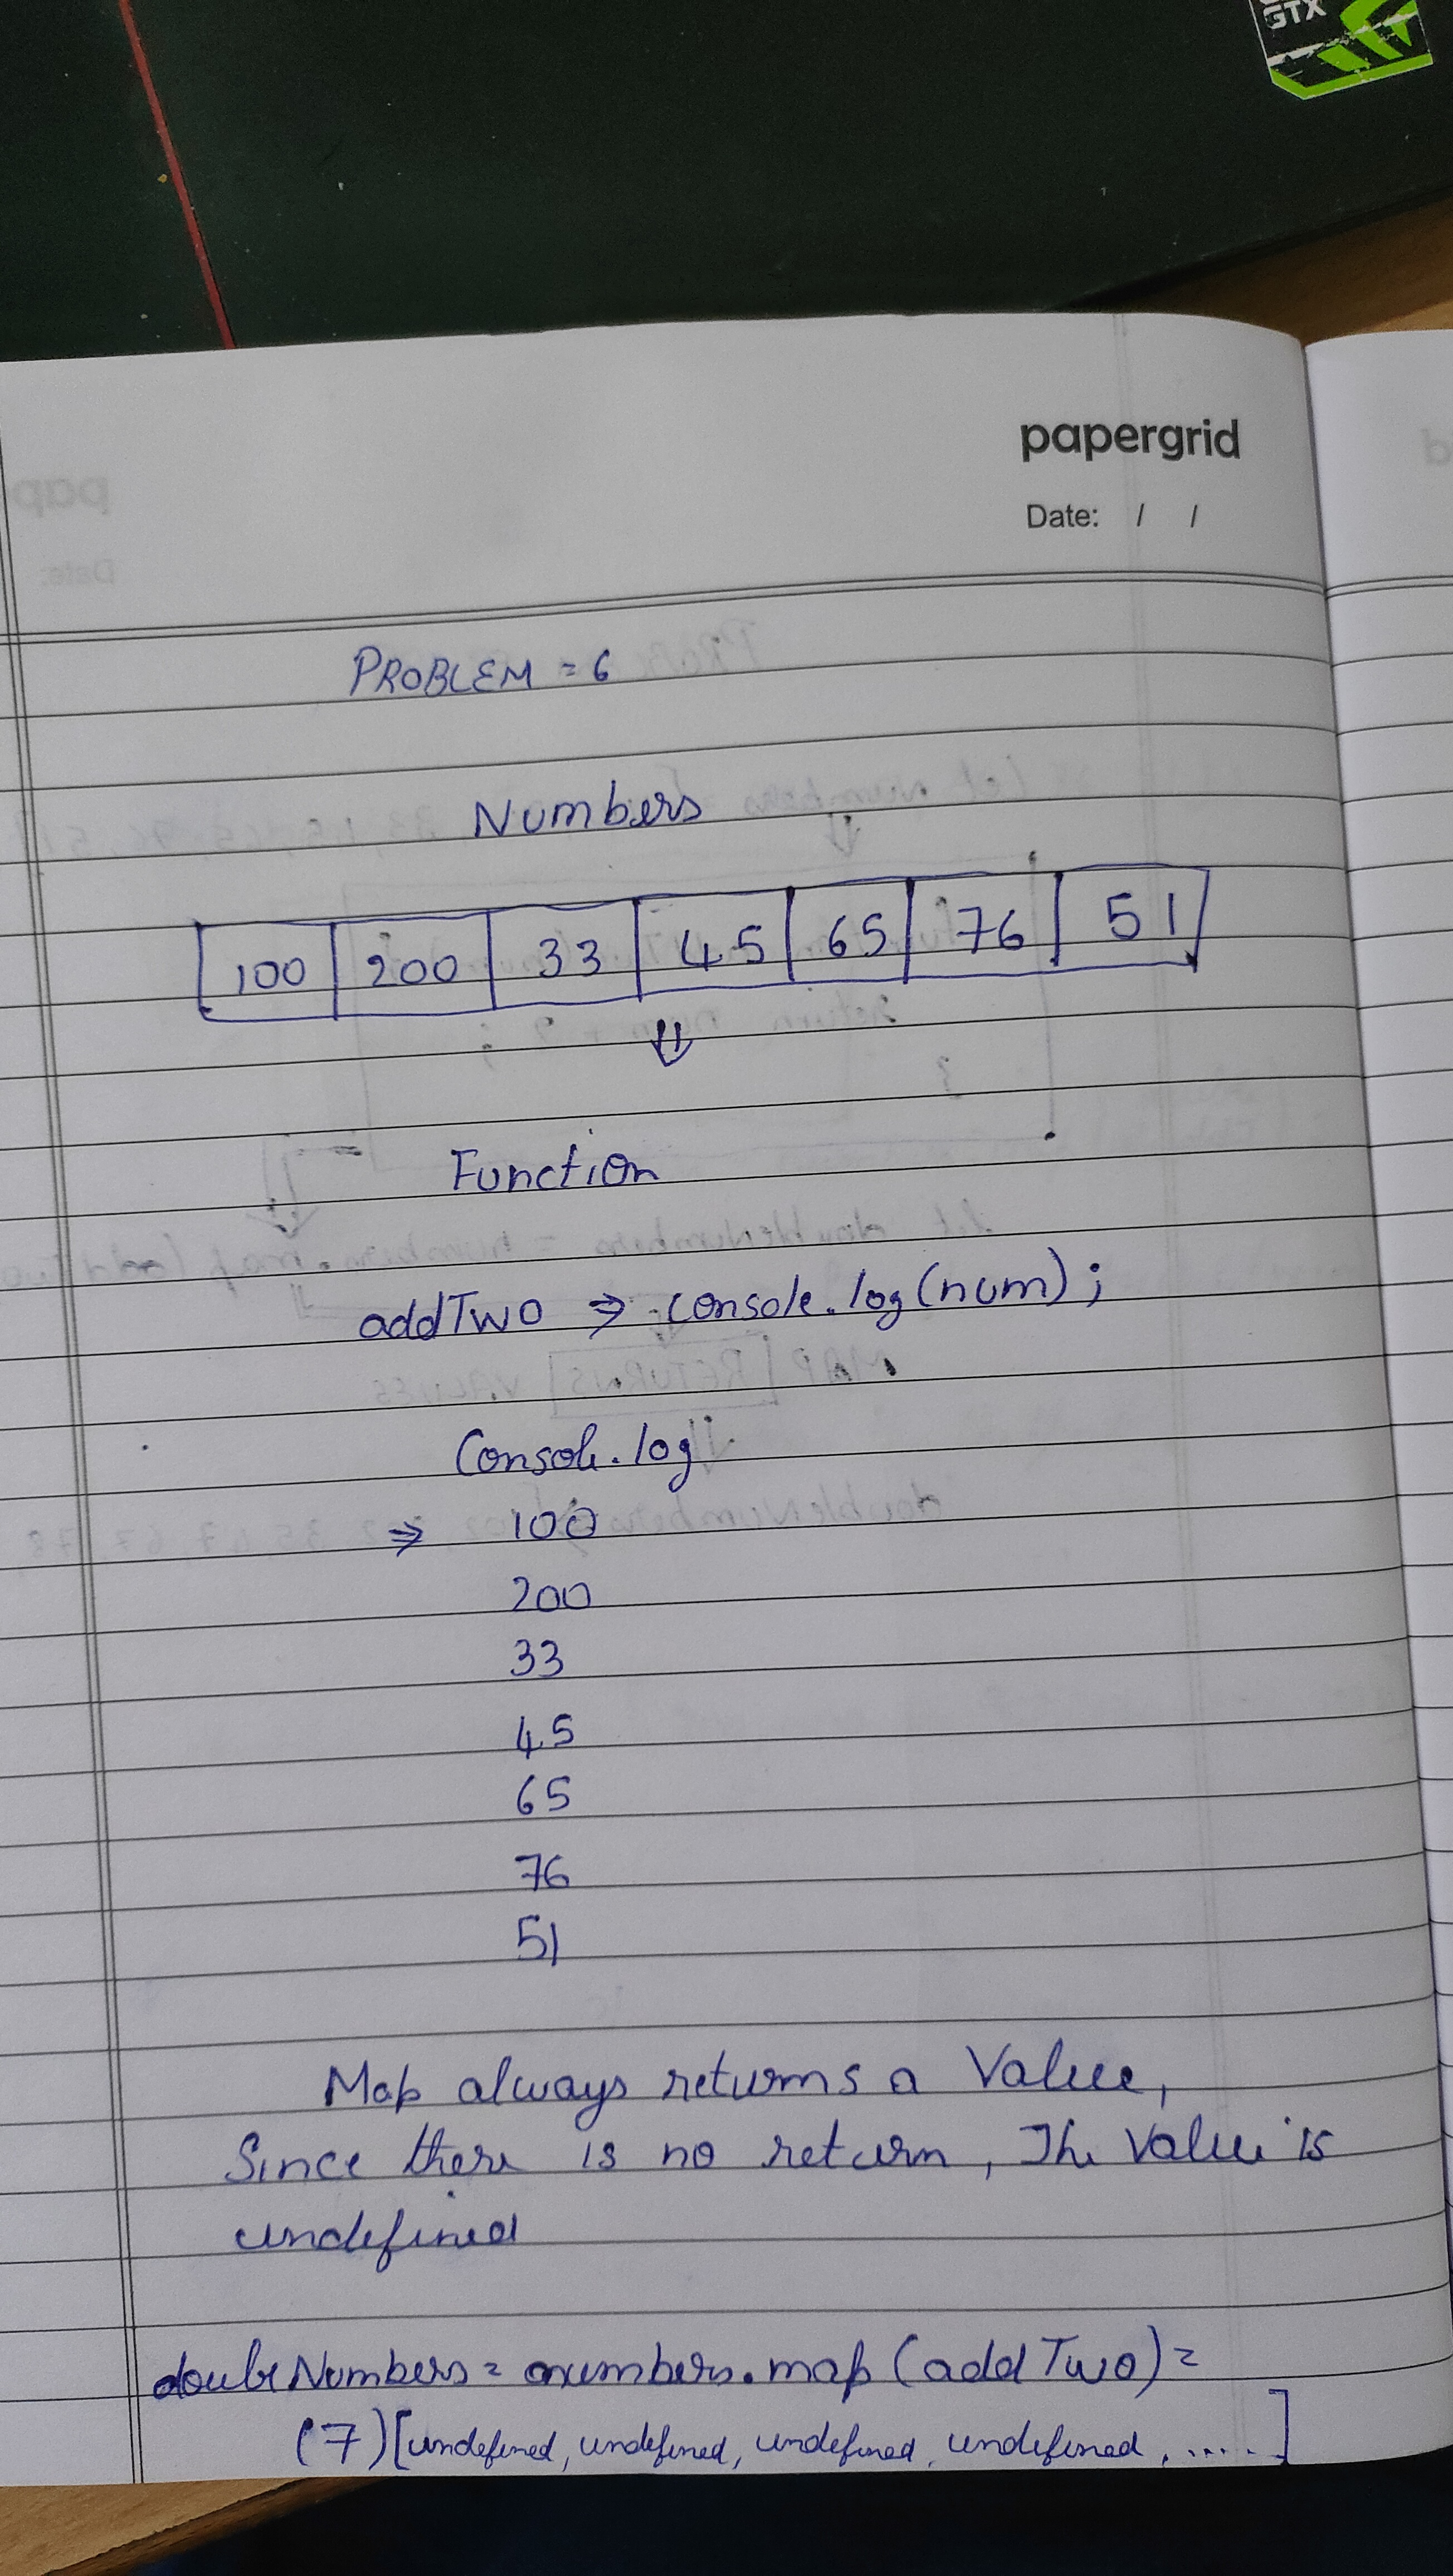 GTX
papergrid
Date: / /
PROBLEM = 6
Numbers
100 200 33 45 65 76 51
⇓
Function
addTwo ⇒ console.log(num);
Console.log
⇒ 100
200
33
45
65
76
51
Map always returns a Value,
Since there is no return, The Value is
undefined
doubleNumbers = numbers.map(addTwo) =
(7)[undefined, undefined, undefined, undefined, .....]